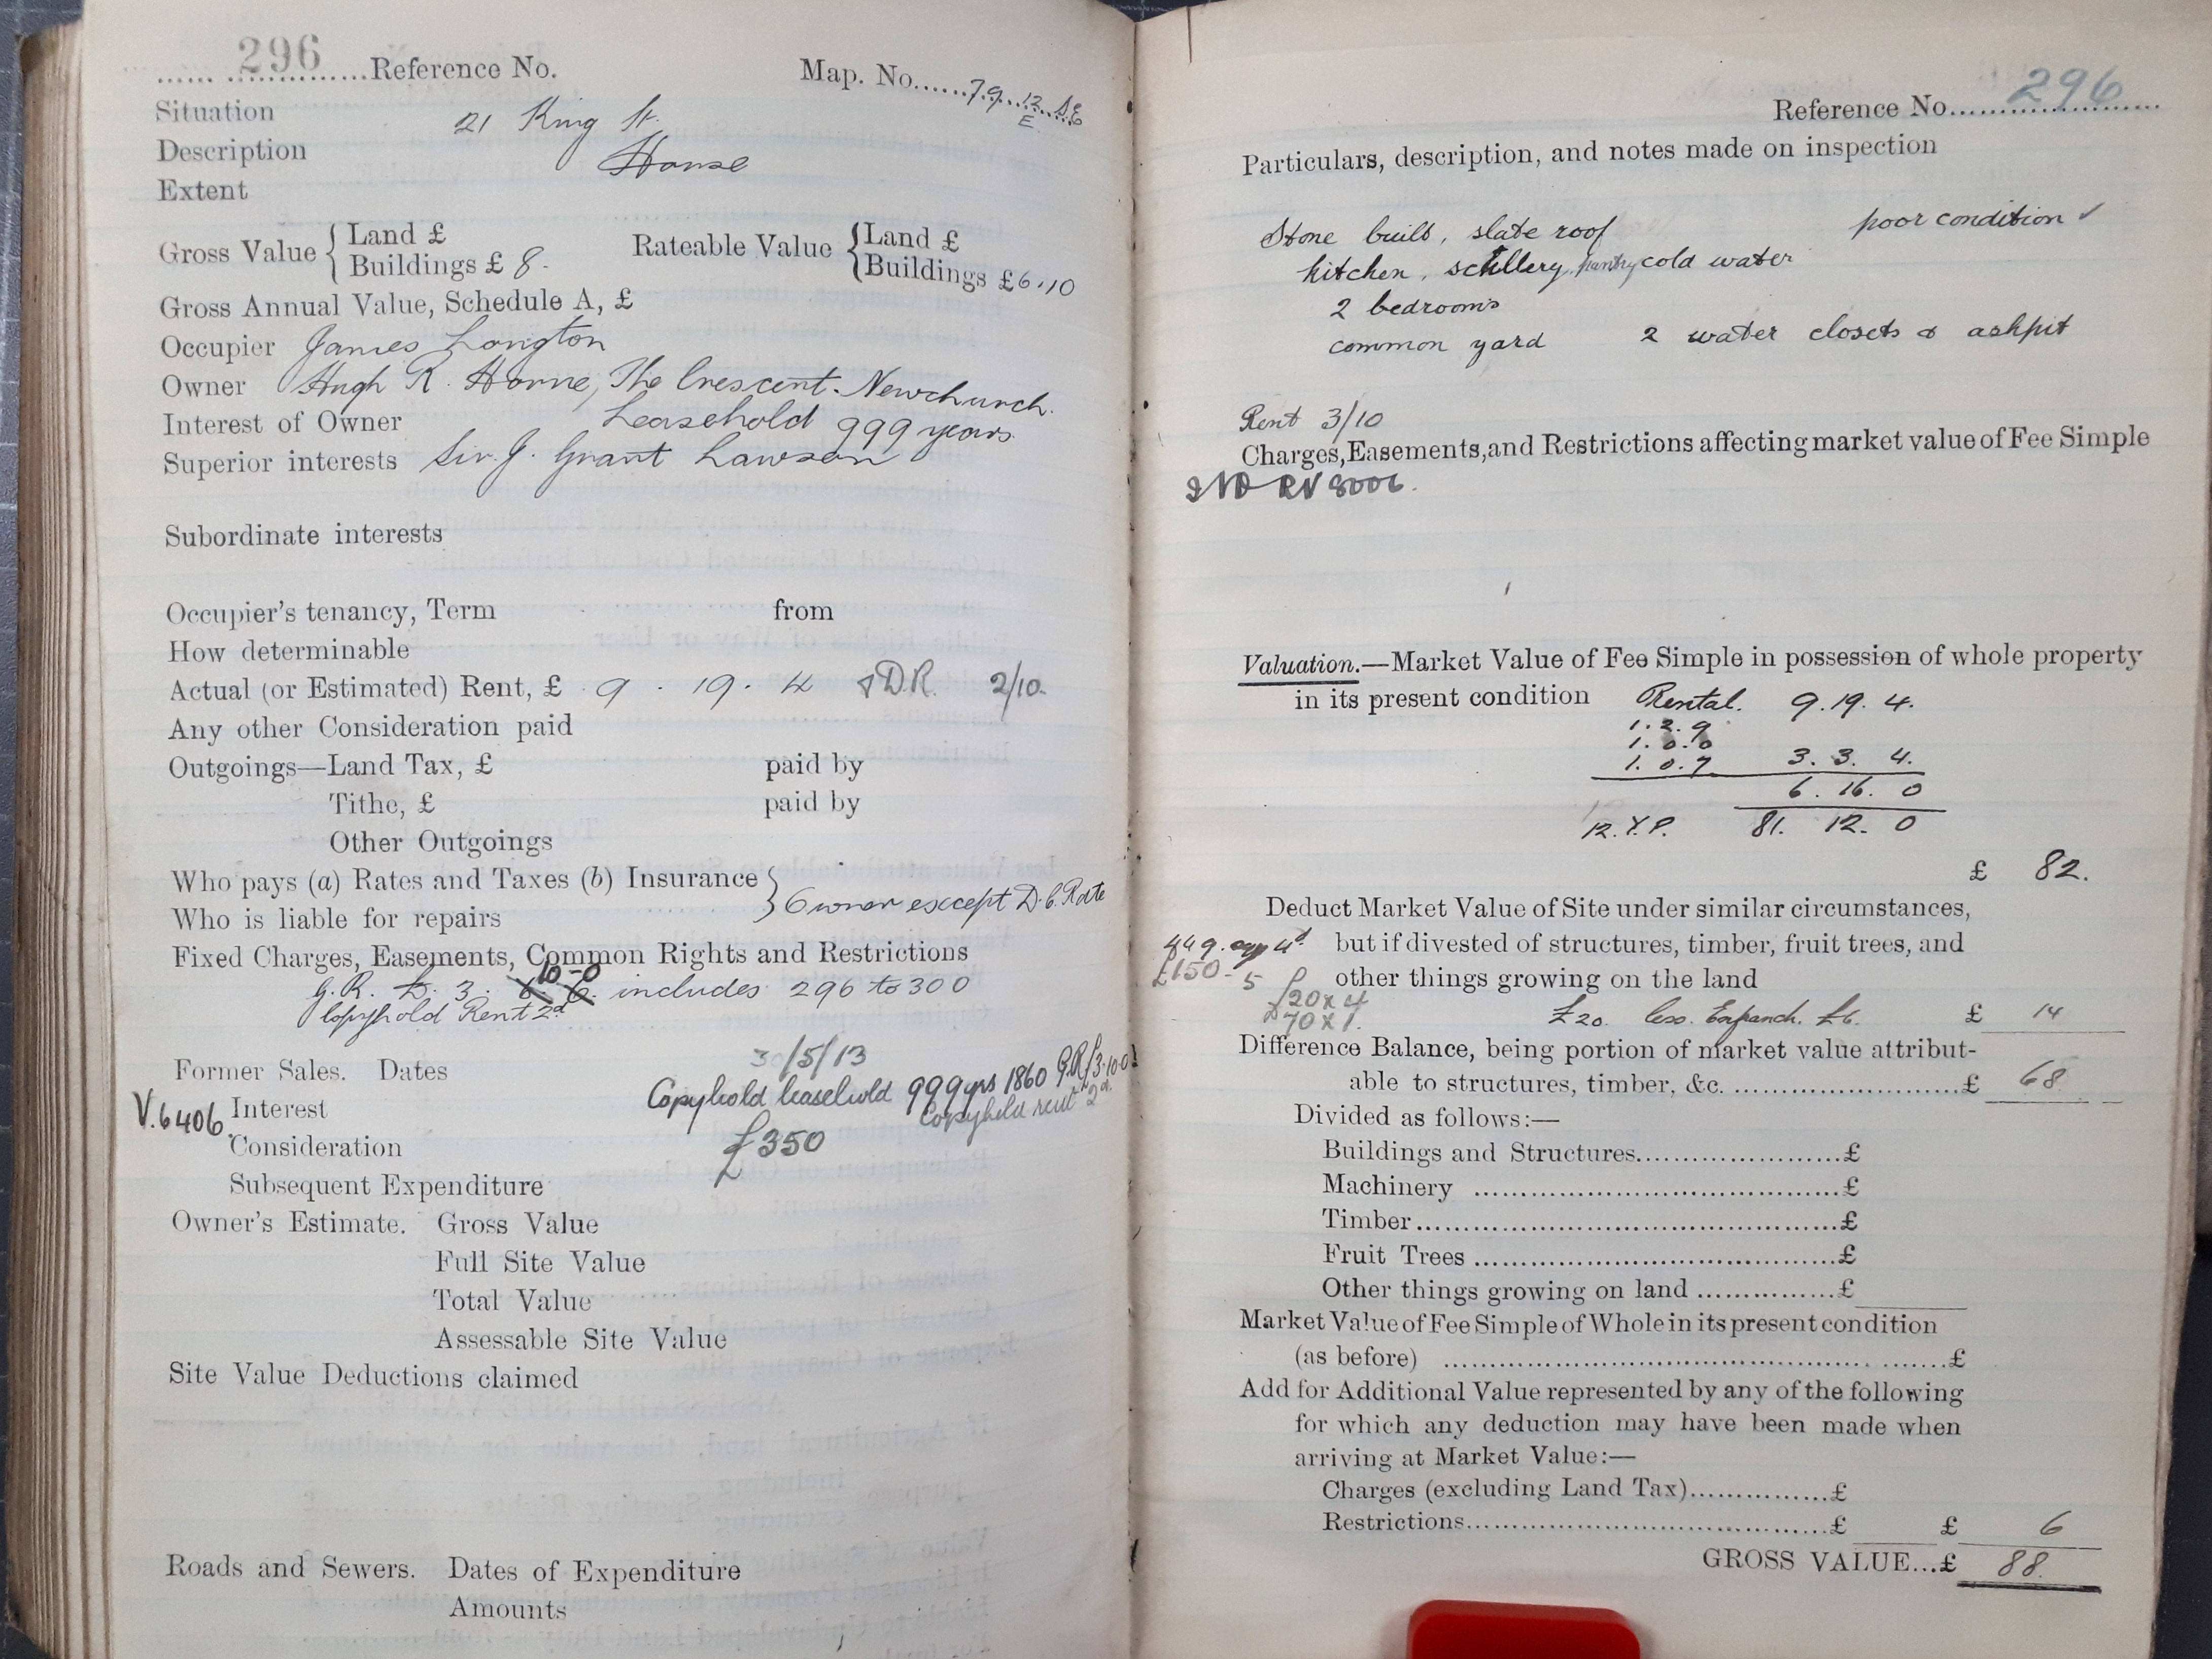 296 Reference No. Map. No. 79 12 SE
E
Situation 21 King St.
Description House
Extent
Gross Value { Land £ Rateable Value { Land £
Buildings £ 8 - Buildings £ 6.10
Gross Annual Value, Schedule A, £
Occupier James Longton
Owner Hugh R. Horne, The Crescent. Newchurch.
Interest of Owner Leasehold 999 years
Superior interests Sir J. Grant Lawson
Subordinate interests
Occupier's tenancy, Term from
How determinable
Actual (or Estimated) Rent, £ 9 . 19 . 4 & D.R. 2/10.
Any other Consideration paid
Outgoings—Land Tax, £ paid by
Tithe, £ paid by
Other Outgoings
Who pays (a) Rates and Taxes (b) Insurance } Owner except D.C. Rate
Who is liable for repairs
Fixed Charges, Easements, Common Rights and Restrictions
10-0
G.R. £. 3. 6. 6. includes 296 to 300
Copyhold Rent 2d
Former Sales. Dates 30/5/13
V.6406 Interest Copyhold leasehold 999 yrs 1860 G.R £3.10.0
Copyhold rent 2d.
Consideration £350
Subsequent Expenditure
Owner's Estimate. Gross Value
Full Site Value
Total Value
Assessable Site Value
Site Value Deductions claimed
Roads and Sewers. Dates of Expenditure
Amounts
Reference No. 296
Particulars, description, and notes made on inspection
Stone built, slate roof poor condition ✓
kitchen, scullery, pantry cold water
2 bedrooms
common yard 2 water closets & ashpit
Rent 3/10
Charges, Easements, and Restrictions affecting market value of Fee Simple
IND RV 8006.
Valuation.—Market Value of Fee Simple in possession of whole property
in its present condition Rental. 9.19.4.
1.2.9
1.0.0
1.0.7 3.3.4.
6.16.0
12.Y.P. 81.12.0
£ 82.
Deduct Market Value of Site under similar circumstances,
449. 4d but if divested of structures, timber, fruit trees, and
£150-5 other things growing on the land
£20 x 4
70 x 1. £20. less Enfranch. £6. £ 14
Difference Balance, being portion of market value attribut-
able to structures, timber, &c. £ 68
Divided as follows:—
Buildings and Structures £
Machinery £
Timber £
Fruit Trees £
Other things growing on land £
Market Value of Fee Simple of Whole in its present condition
(as before) £
Add for Additional Value represented by any of the following
for which any deduction may have been made when
arriving at Market Value:—
Charges (excluding Land Tax) £
Restrictions £ £ 6
GROSS VALUE...£ 88.